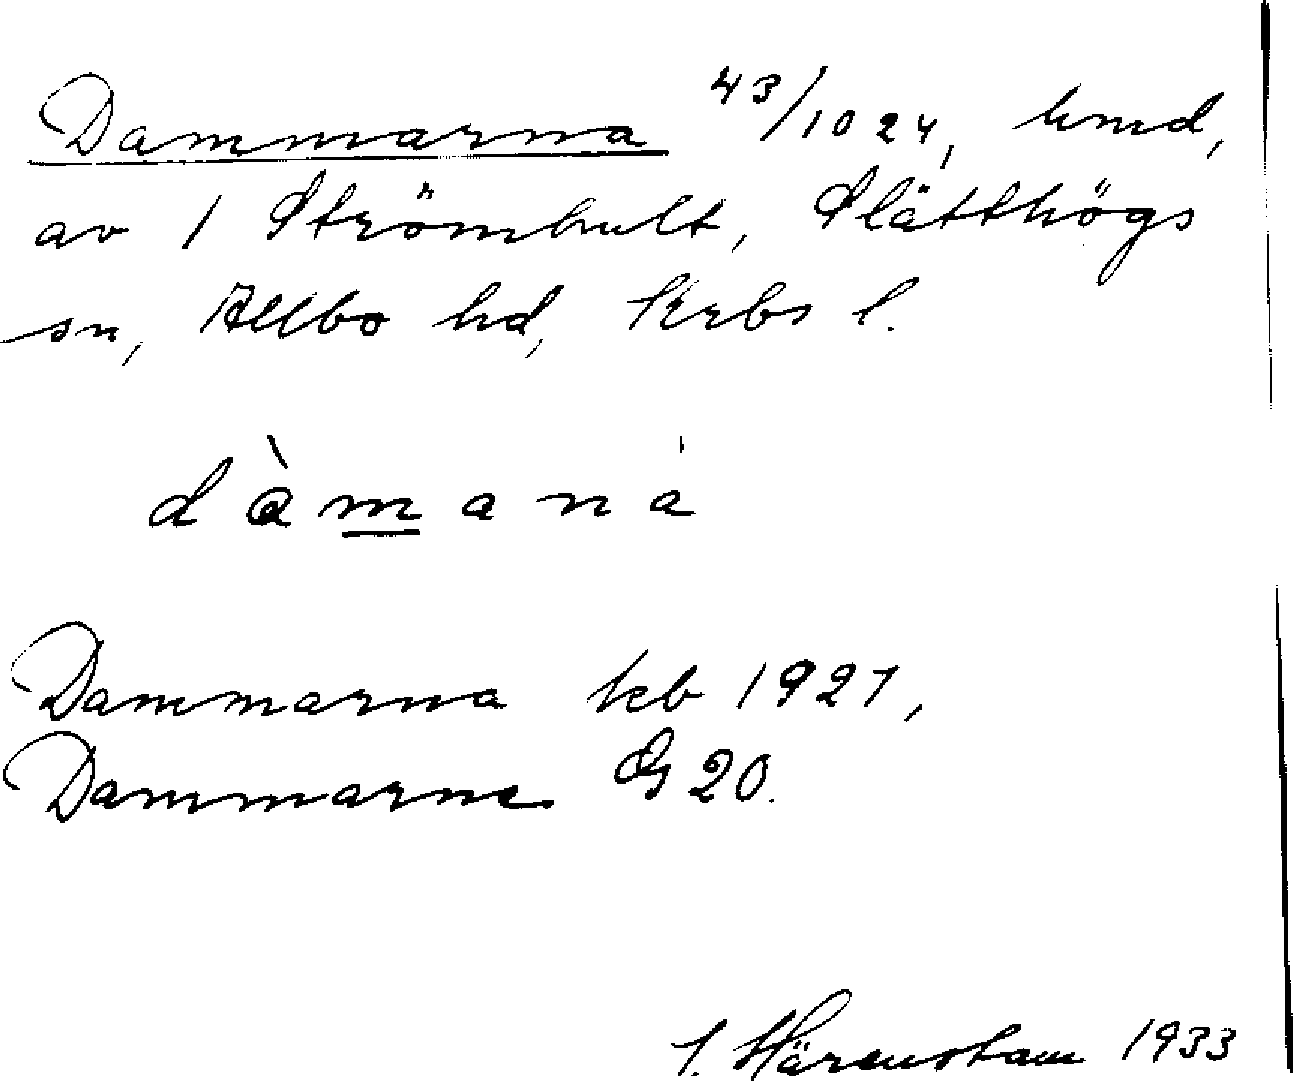 Dammarna 43/1024, hmd,
av 1 Strömhult, Slätthögs
sn, Allbo hd, Krbs l.
dàmaná
Dammarna kb 1927,
Dammarne G 20.
1933